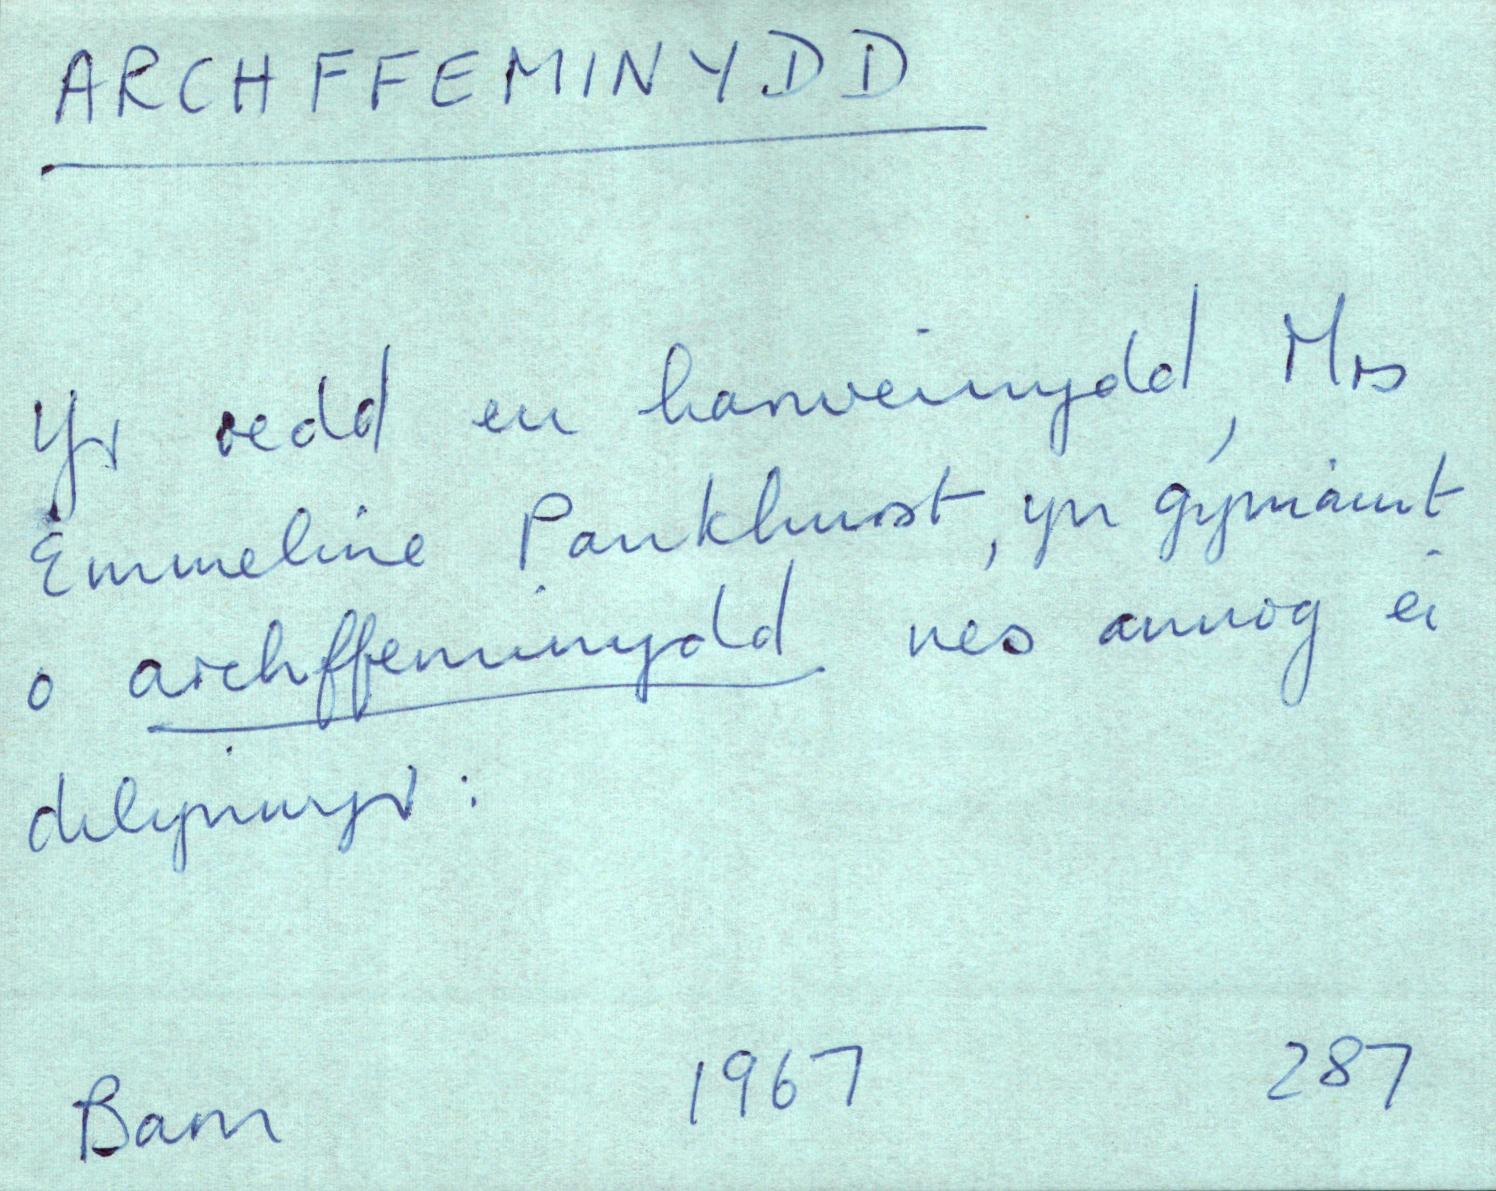 ARCHFFEMINYDD
Yr oedd eu harweinydd, Mrs
Emmeline Pankhurst, yn gymaint
o archffeminydd nes annog ei
dilynwyr :
Barn 1967 287